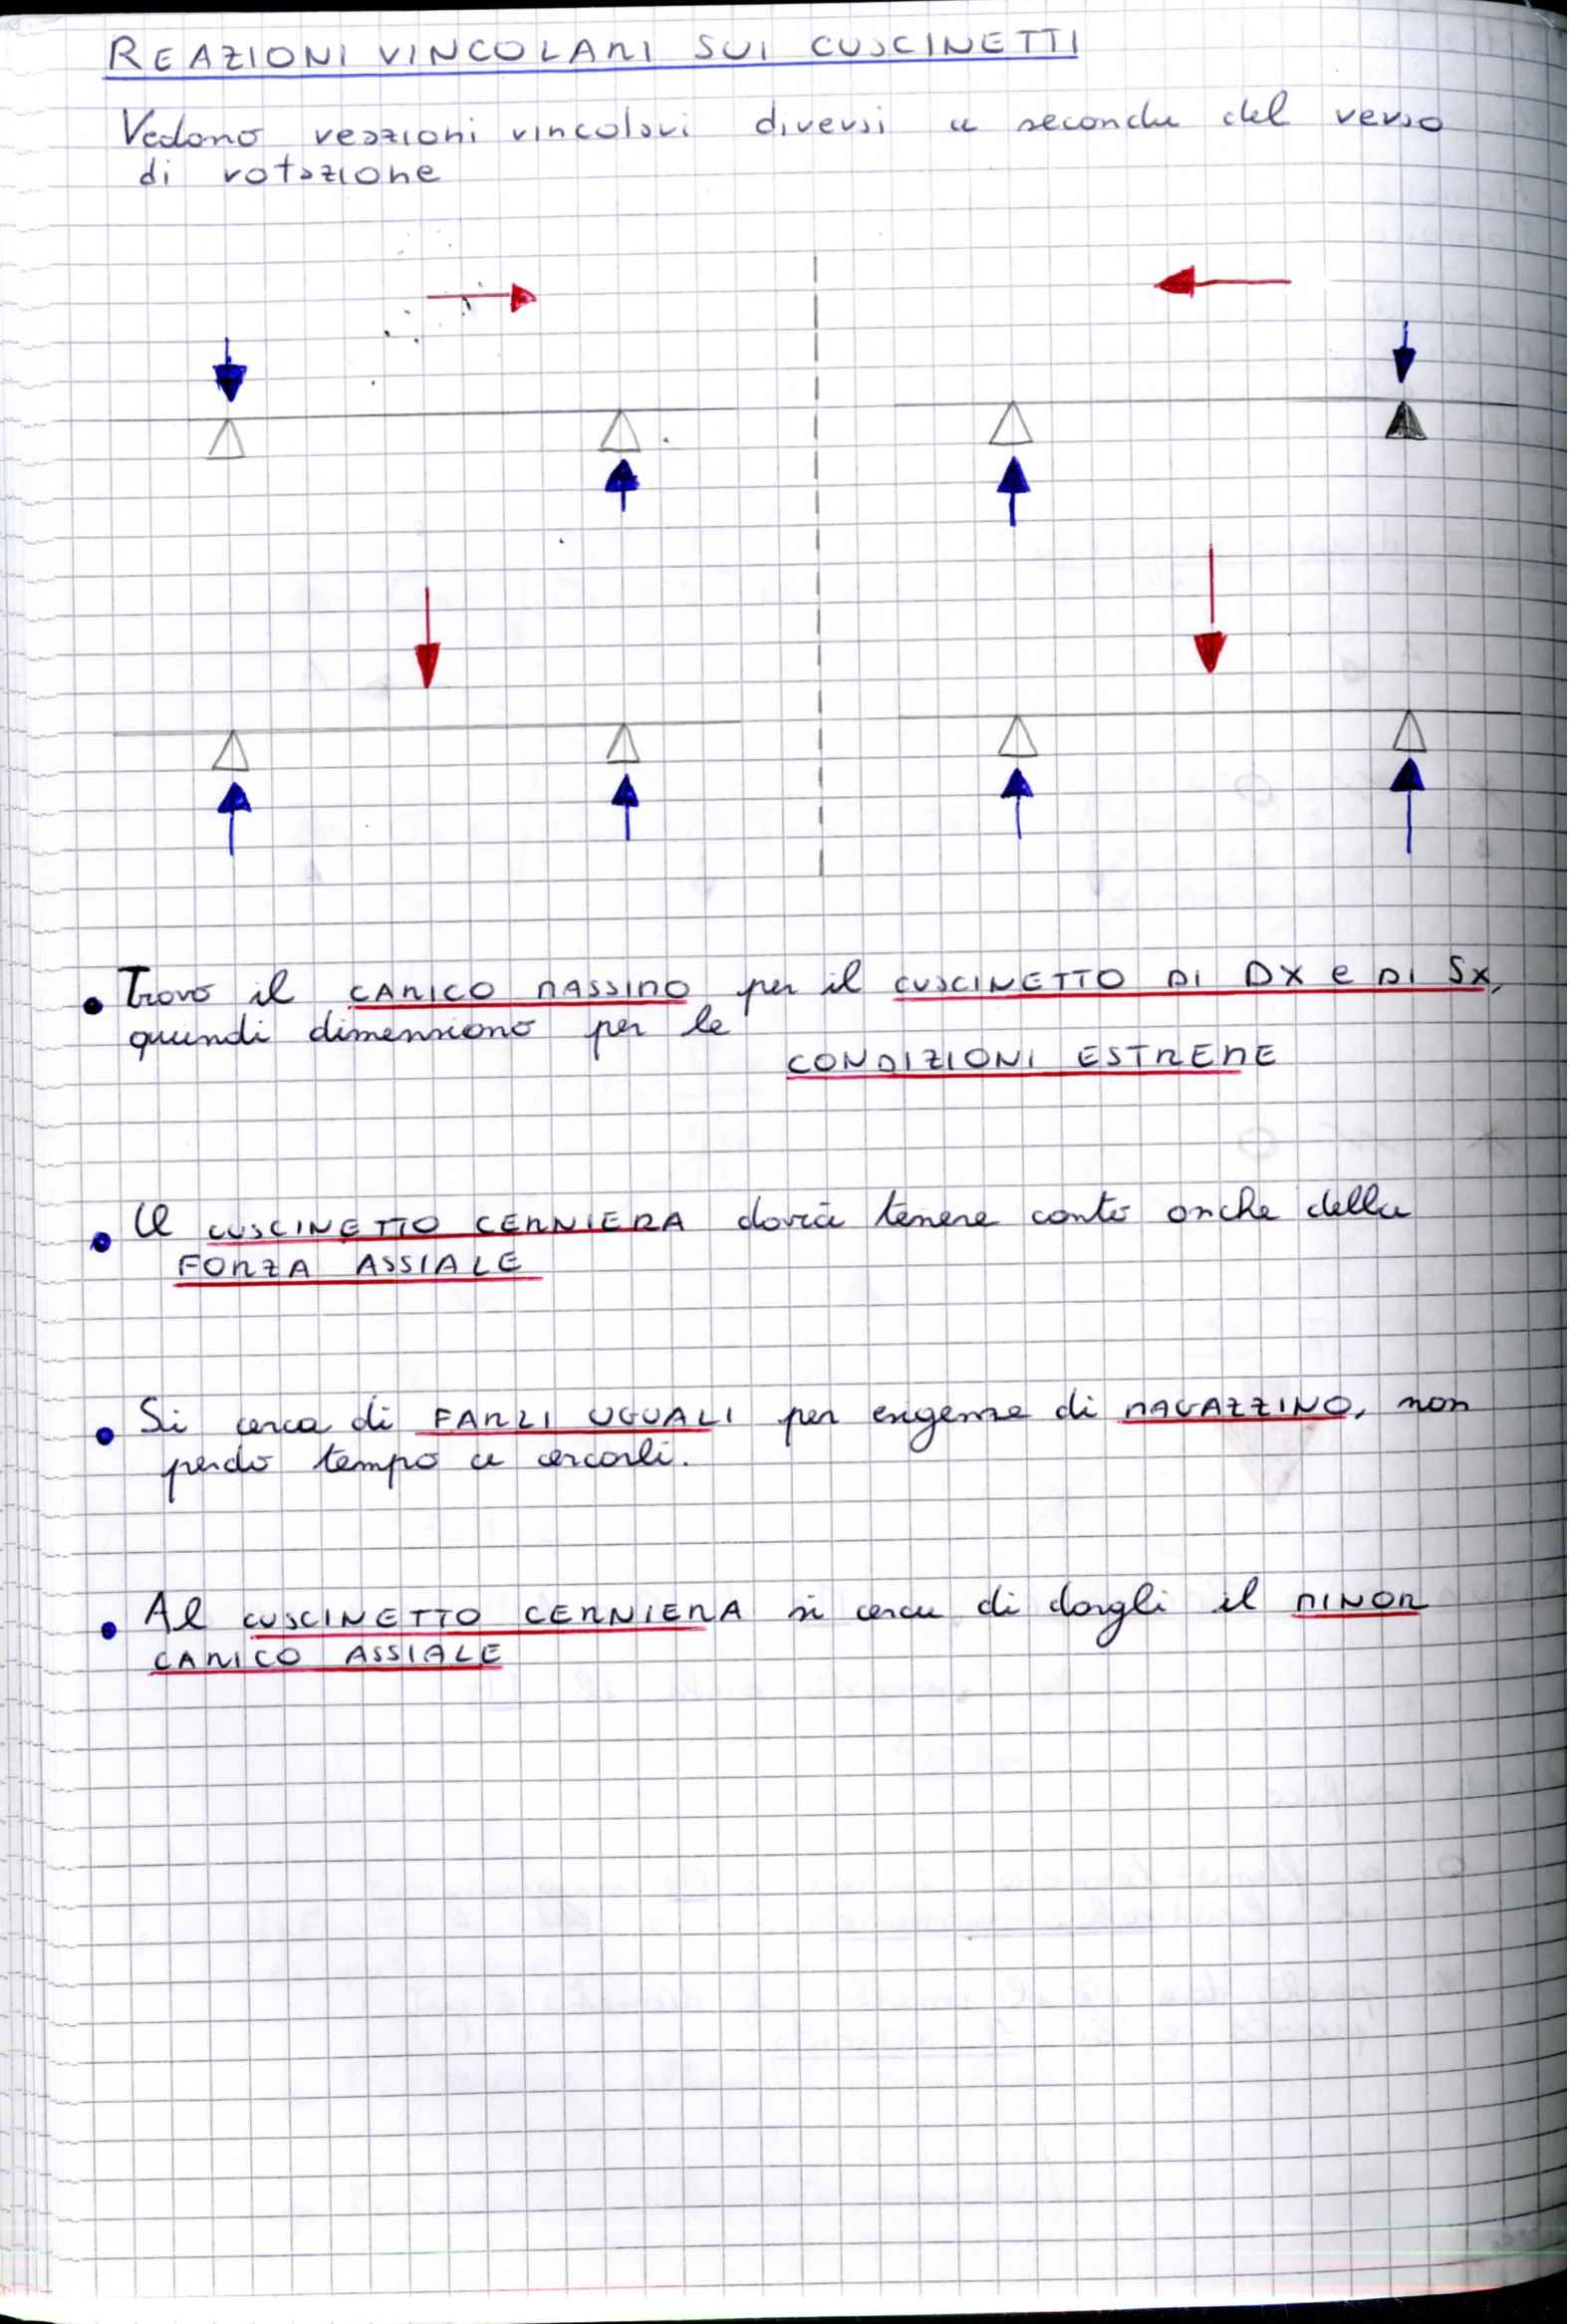 REAZIONI VINCOLARI SUI CUSCINETTI
Vedono reazioni vincolari diversi a seconda del verso
di rotazione
• Trovo il CARICO MASSIMO per il CUSCINETTO DI DX e DI SX,
quindi dimensiono per le
CONDIZIONI ESTREME
• Il CUSCINETTO CERNIERA dovrà tenere conto anche della
FORZA ASSIALE
• Si cerca di FARLI UGUALI per esigenze di MAGAZZINO, non
perdo tempo a cercarli.
• Al CUSCINETTO CERNIERA si cerca di dargli il MINOR
CARICO ASSIALE